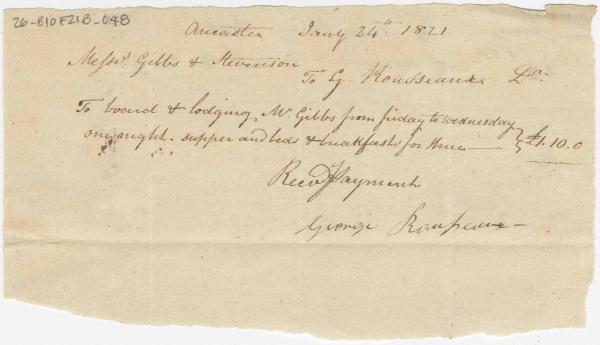 26-B10F21B-048
Ancaster Jany 24th 1821
Messrs Gibbs & Stevenson
To G. Rousseaux Dr
To board & lodging Mr Gibbs from friday to wednesday
one night - supper and beds & breakfasts for three — } £1.10.0
Recd Payment
George Rousseaux